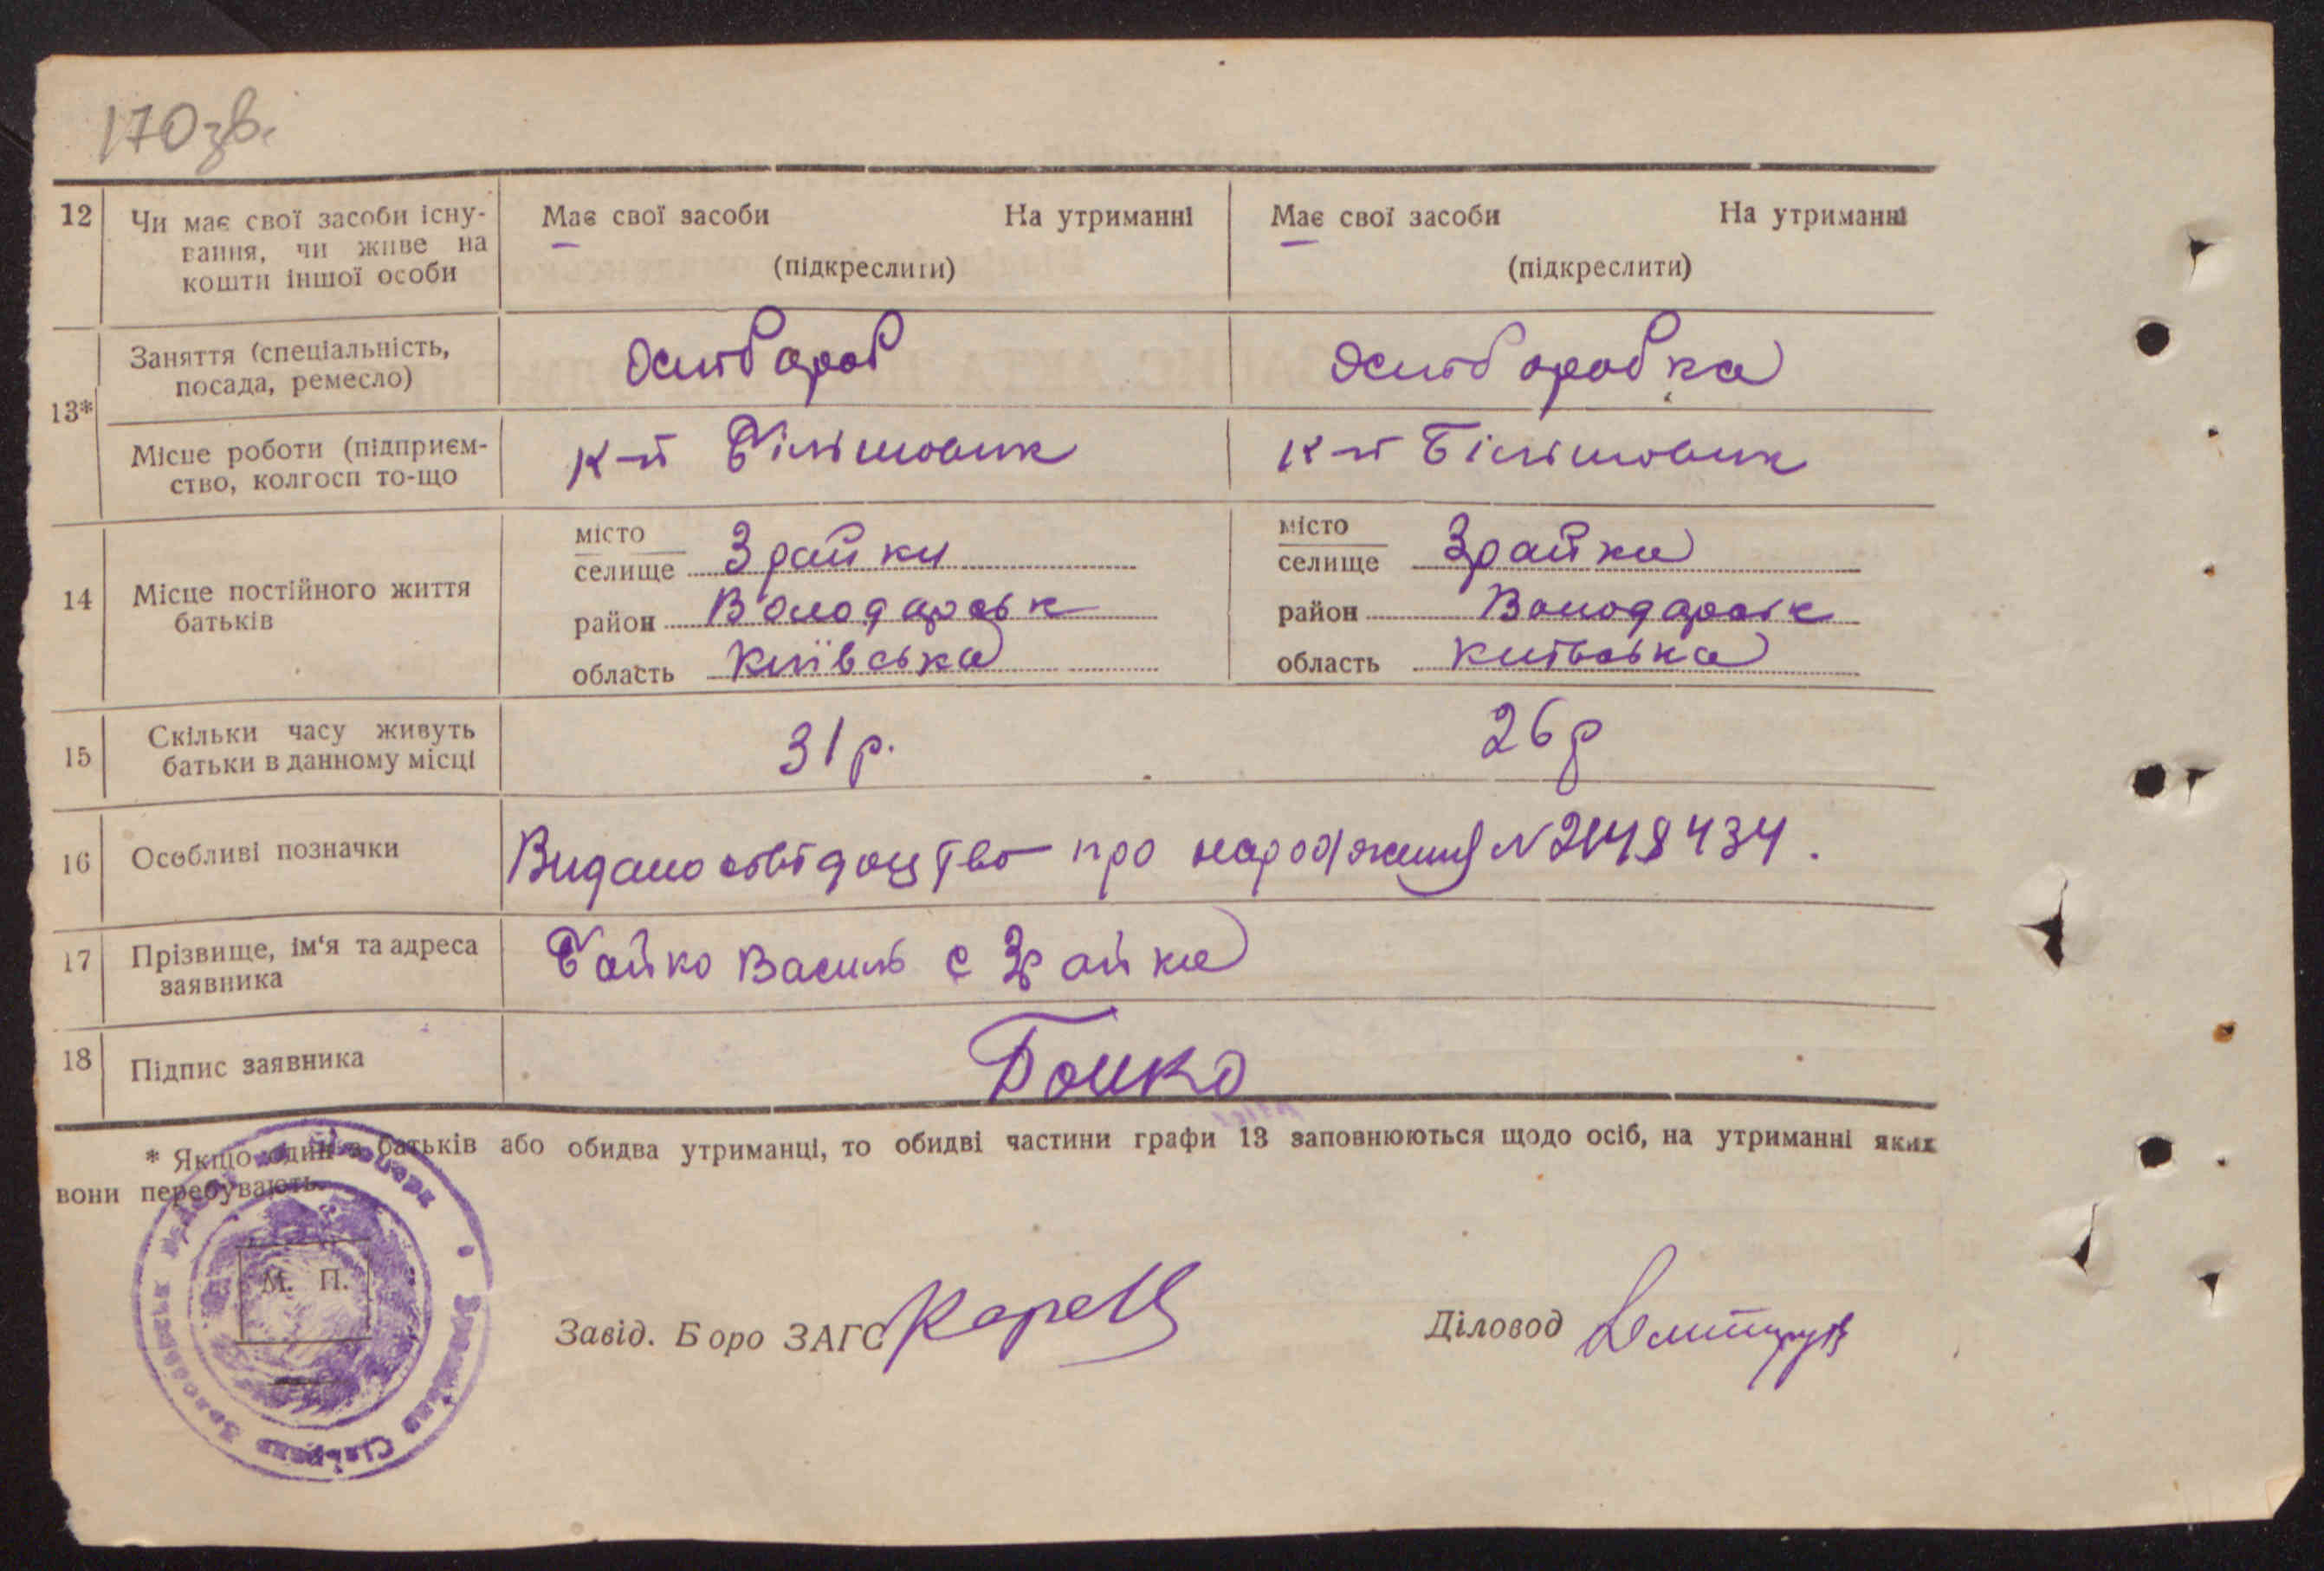 170 зв.
12 Чи має свої засоби існу- Має свої засоби На утриманні Має свої засоби На утриманні
вання, чи живе на (підкреслити) (підкреслити)
кошти іншої особи
13* Заняття (спеціальність, Хлібороб Хліборобка
посада, ремесло)
Місце роботи (підприєм- К-п Більшовик К-п Більшовик
ство, колгосп то-що
14 Місце постійного життя батьків
місто селище Зрайки місто селище Зрайки
район Володарськ район Володарськ
область Київська область Київська
15 Скільки часу живуть 31 р. 26 р
батьки в данному місці
16 Особливі позначки Видано свідоцтво про народження N 2148434.
17 Прізвище, ім'я та адреса Бойко Василь с Зрайки
заявника
18 Підпис заявника Бойко
* Якщо один з батьків або обидва утриманці, то обидві частини графи 13 заповнюються щодо осіб, на утриманні яких
вони перебувають.
М. П.
Завід. Бюро ЗАГС Діловод